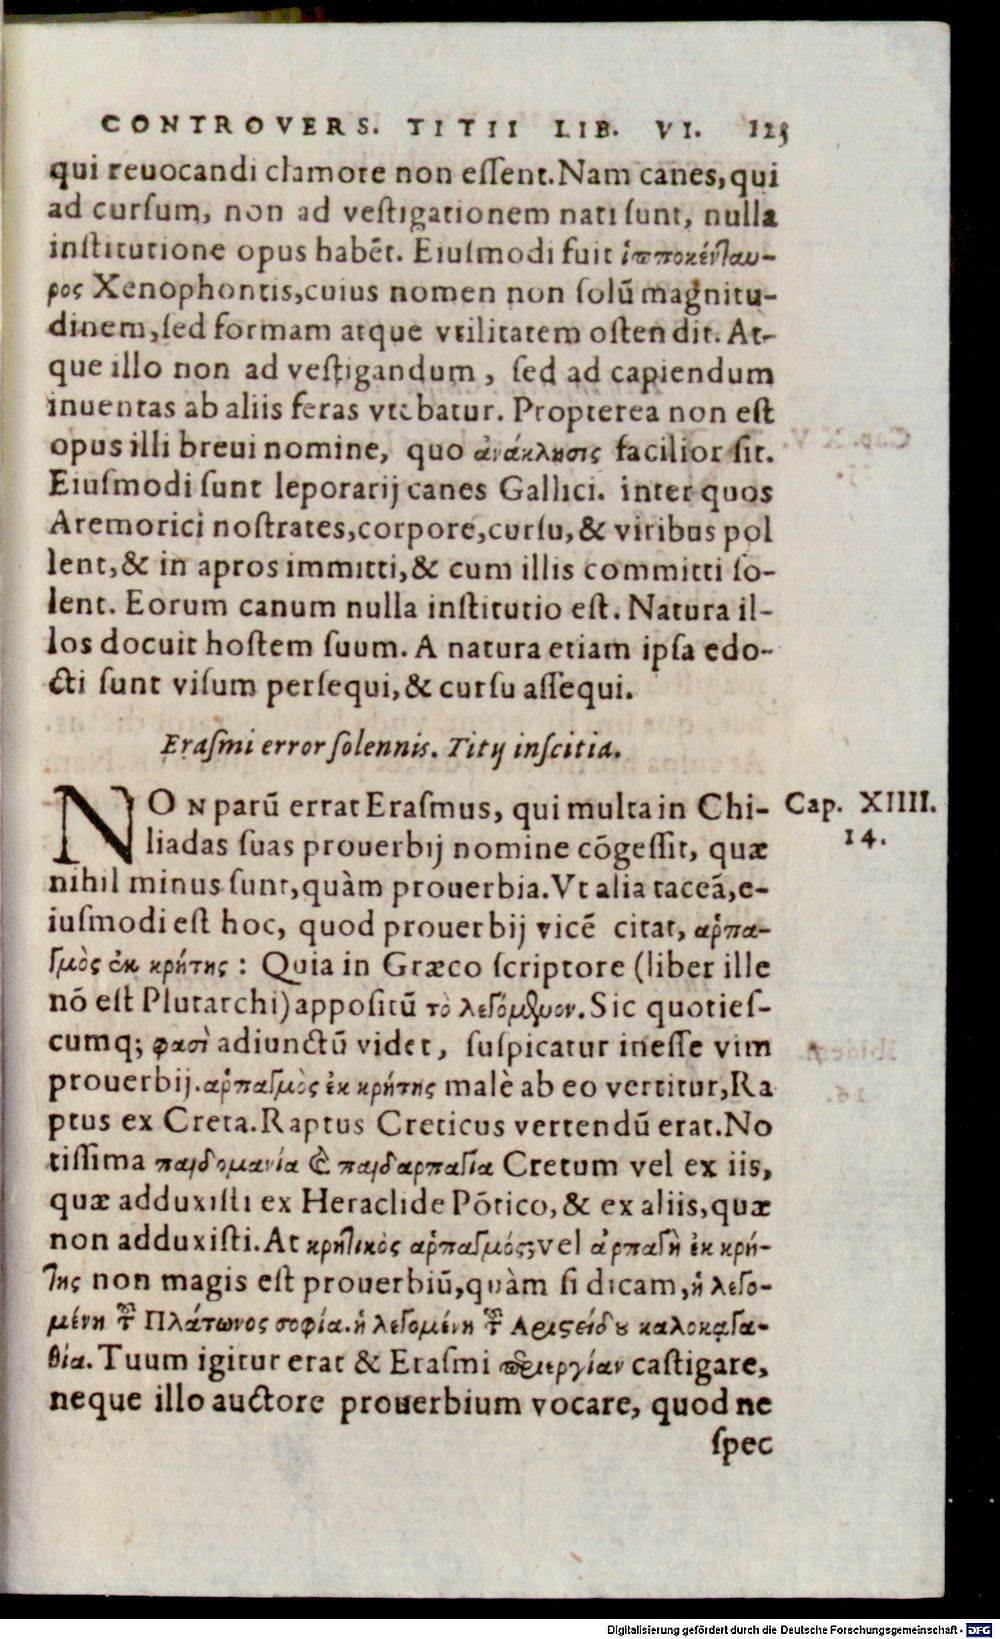 CONTROVERS. TITII LIB. VI. 125
qui reuocandi clamore non eſſent. Nam canes, qui
ad curſum, non ad veſtigationem nati ſunt, nulla
inſtitutione opus habẽt. Eiuſmodi fuit ἱπποκένταυ-
ρος Xenophontis, cuius nomen non ſolũ magnitu-
dinem, ſed formam atque vtilitatem oſtendit. At-
que illo non ad veſtigandum, ſed ad capiendum
inuentas ab aliis feras vtebatur. Propterea non eſt
opus illi breui nomine, quo ἀνάκλησις facilior ſit.
Eiuſmodi ſunt leporarij canes Gallici. inter quos
Aremorici noſtrates, corpore, curſu, & viribus pol
lent, & in apros immitti, & cum illis committi ſo-
lent. Eorum canum nulla inſtitutio eſt. Natura il-
los docuit hoſtem ſuum. A natura etiam ipſa edo-
cti ſunt viſum perſequi, & curſu aſſequi.
Eraſmi error ſolennis. Titij inſcitia.
NON parũ errat Eraſmus, qui multa in Chi-
Cap. XIIII.
14.
liadas ſuas prouerbij nomine cõgeſſit, quæ
nihil minus ſunt, quàm prouerbia. Vt alia taceã, e-
iuſmodi eſt hoc, quod prouerbij vicẽ citat, ἁρπα-
γμὸς ἐκ κρήτης: Quia in Græco ſcriptore (liber ille
nõ eſt Plutarchi) appoſitũ τὸ λεγόμενον. Sic quotieſ-
cumq; φασὶ adiunctũ videt, ſuſpicatur ineſſe vim
prouerbij. ἁρπαγμὸς ἐκ κρήτης malè ab eo vertitur, Ra
ptus ex Creta. Raptus Creticus vertendũ erat. No
tiſſima παιδομανία & παιδαρπαγία Cretum vel ex iis,
quæ adduxiſti ex Heraclide Põtico, & ex aliis, quæ
non adduxiſti. At κρητικὸς ἁρπαγμός; vel ἁρπαγὴ ἐκ κρή-
της non magis eſt prouerbiũ, quàm ſi dicam, ἡ λεγο-
μένη τοῦ Πλάτωνος σοφία. ἡ λεγομένη τοῦ Αριστείδου καλοκαγα-
θία. Tuum igitur erat & Eraſmi περιεργίαν caſtigare,
neque illo auctore prouerbium vocare, quod ne
ſpec
Digitalisierung gefördert durch die Deutsche Forschungsgemeinschaft - DFG